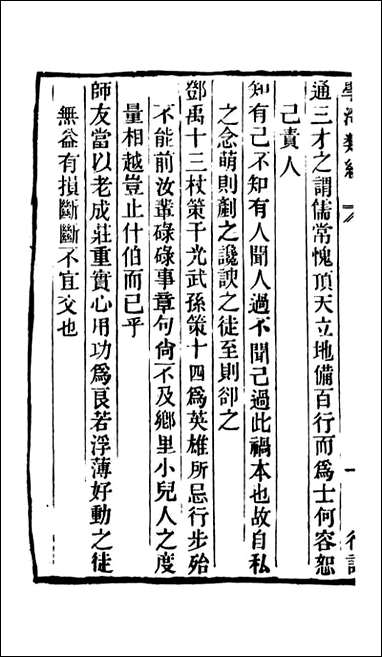 通三才之謂儒常愧頂天立地備百行而爲士何容恕
己責人
知有己不知有人聞人過不聞己過此禍本也故自私
之念萌則剷之讒諛之徒至則卻之
鄧禹十三杖策干光武孫策十四爲英雄所忌行步殆
不能前汝輩碌碌事章句尙不及鄉里小兒人之度
量相越豈止什伯而已乎
師友當以老成莊重實心用功爲良若浮薄好動之徒
無益有損斷斷不宜交也